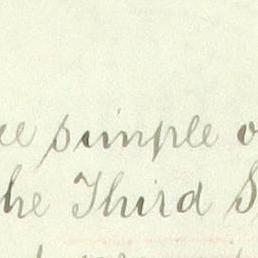 ee simple o
he Third S